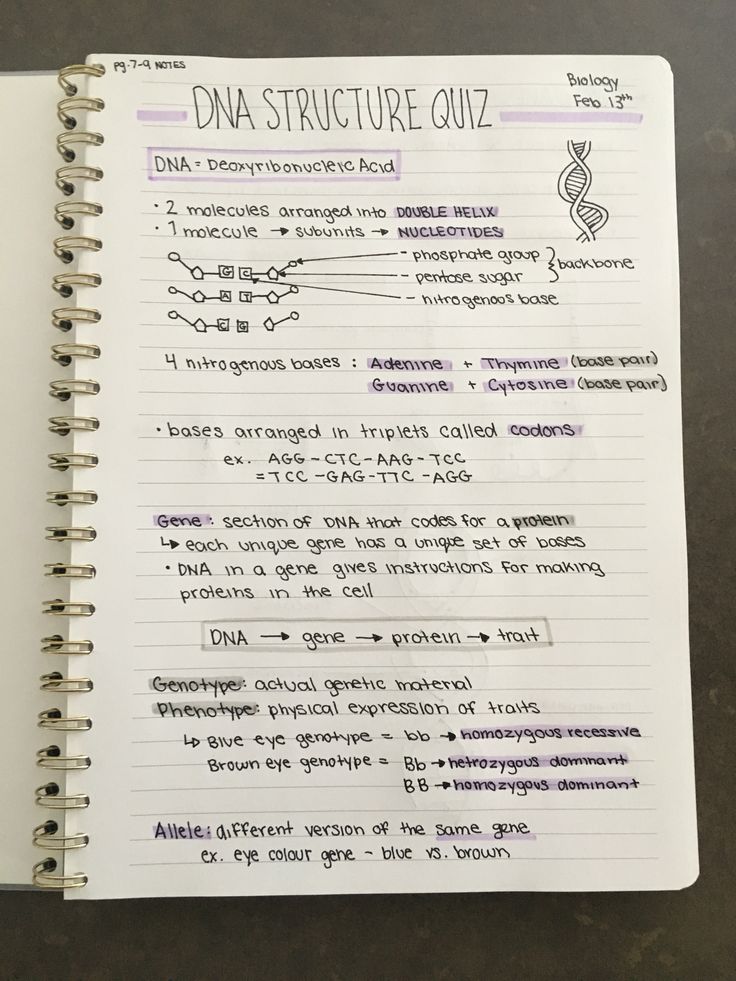 pg.7-9 NOTES
Biology
Feb 13th
DNA STRUCTURE QUIZ
DNA = Deoxyribonucleic Acid
• 2 molecules arranged into DOUBLE HELIX
• 1 molecule → subunits → NUCLEOTIDES
- phosphate group
- pentose sugar
backbone
- nitrogenous base
G C
A T
C G
4 nitrogenous bases : Adenine + Thymine (base pair)
Guanine + Cytosine (base pair)
• bases arranged in triplets called codons
ex. AGG - CTC - AAG - TCC
= TCC - GAG - TTC - AGG
Gene: section of DNA that codes for a protein
↳ each unique gene has a unique set of bases
• DNA in a gene gives instructions for making
proteins in the cell
DNA → gene → protein → trait
Genotype: actual genetic material
Phenotype: physical expression of traits
↳ Blue eye genotype = bb → homozygous recessive
Brown eye genotype = Bb → hetrozygous dominant
BB → homozygous dominant
Allele: different version of the same gene
ex. eye colour gene - blue vs. brown